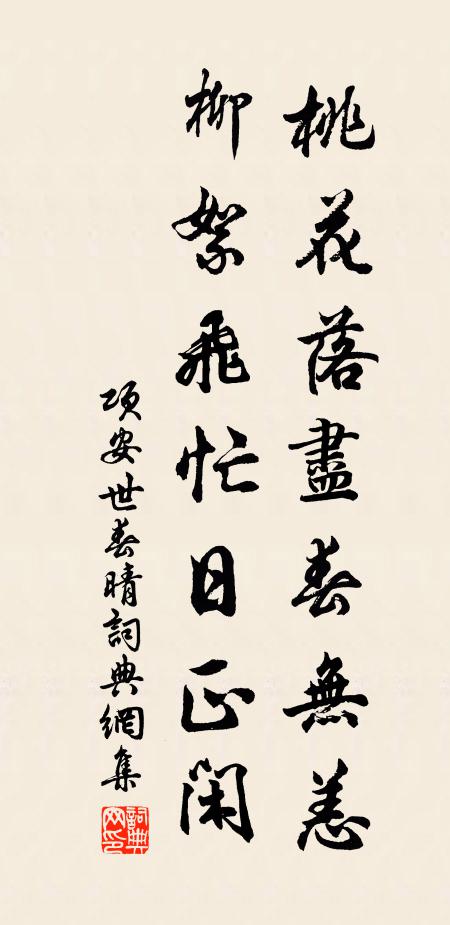 桃花落盡春無恙
柳絮飛忙日正閑
項安世春晴詞典網集
詞典網印